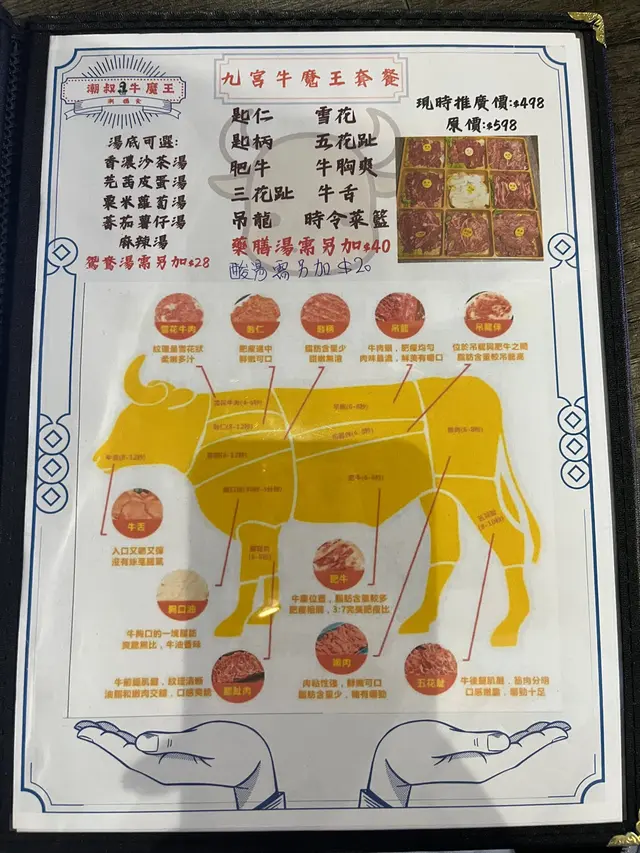 潮叔牛魔王
潮膳食
九宮牛魔王套餐
現時推廣價:$498
原價:$598
湯底可選:
香濃沙茶湯
芫茜皮蛋湯
粟米蘿蔔湯
蕃茄薯仔湯
麻辣湯
鴛鴦湯需另加$28
匙仁 雪花
匙柄 五花趾
肥牛 牛胸爽
三花趾 牛舌
吊龍 時令菜籃
藥膳湯需另加$40
酸湯需另加$20
雪花牛肉
紋理呈雪花狀
柔嫩多汁
匙仁
肥瘦適中
鮮嫩可口
匙柄
脂肪含量少
甜嫩無渣
吊龍
牛肉眼,肥瘦均勻
肉味最濃,鮮美有嚼口
吊龍伴
位於吊龍與肥牛之間
脂肪含量較吊龍高
牛舌
入口又脆又彈
沒有絲毫腥氣
胸口油
牛胸口的一塊脂肪
爽脆無比,牛油香味
肥牛
牛腩位置,脂肪含量較多
肥瘦相間,3:7完美肥瘦比
嫩肉
肉粘性強,鮮嫩可口
脂肪含量少,擁有嚼勁
牛前腿肌腱,紋理清晰
油脂和嫩肉交錯,口感爽脆
五花趾
牛後腿肌腱,筋肉分明
口感嫩脆,嚼勁十足